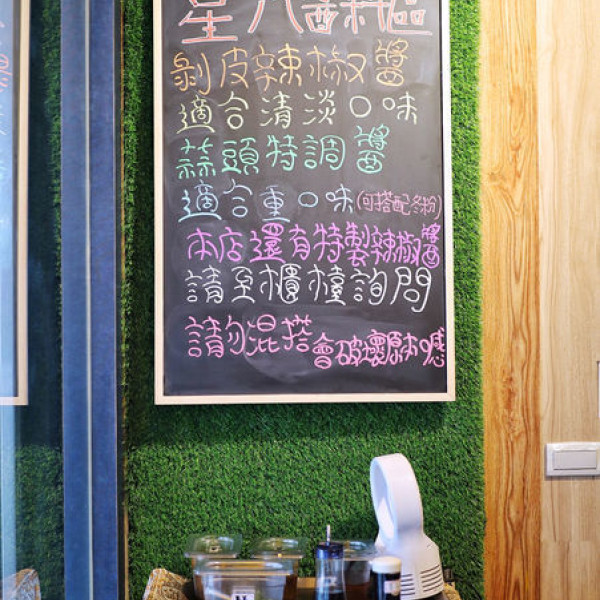 星八醬料區
剝皮辣椒醬
適合清淡口味
蒜頭特調醬
適合重口味(可搭配冬粉)
本店還有特製辣椒醬
請至櫃檯詢問
請勿混搭會破壞原本口感